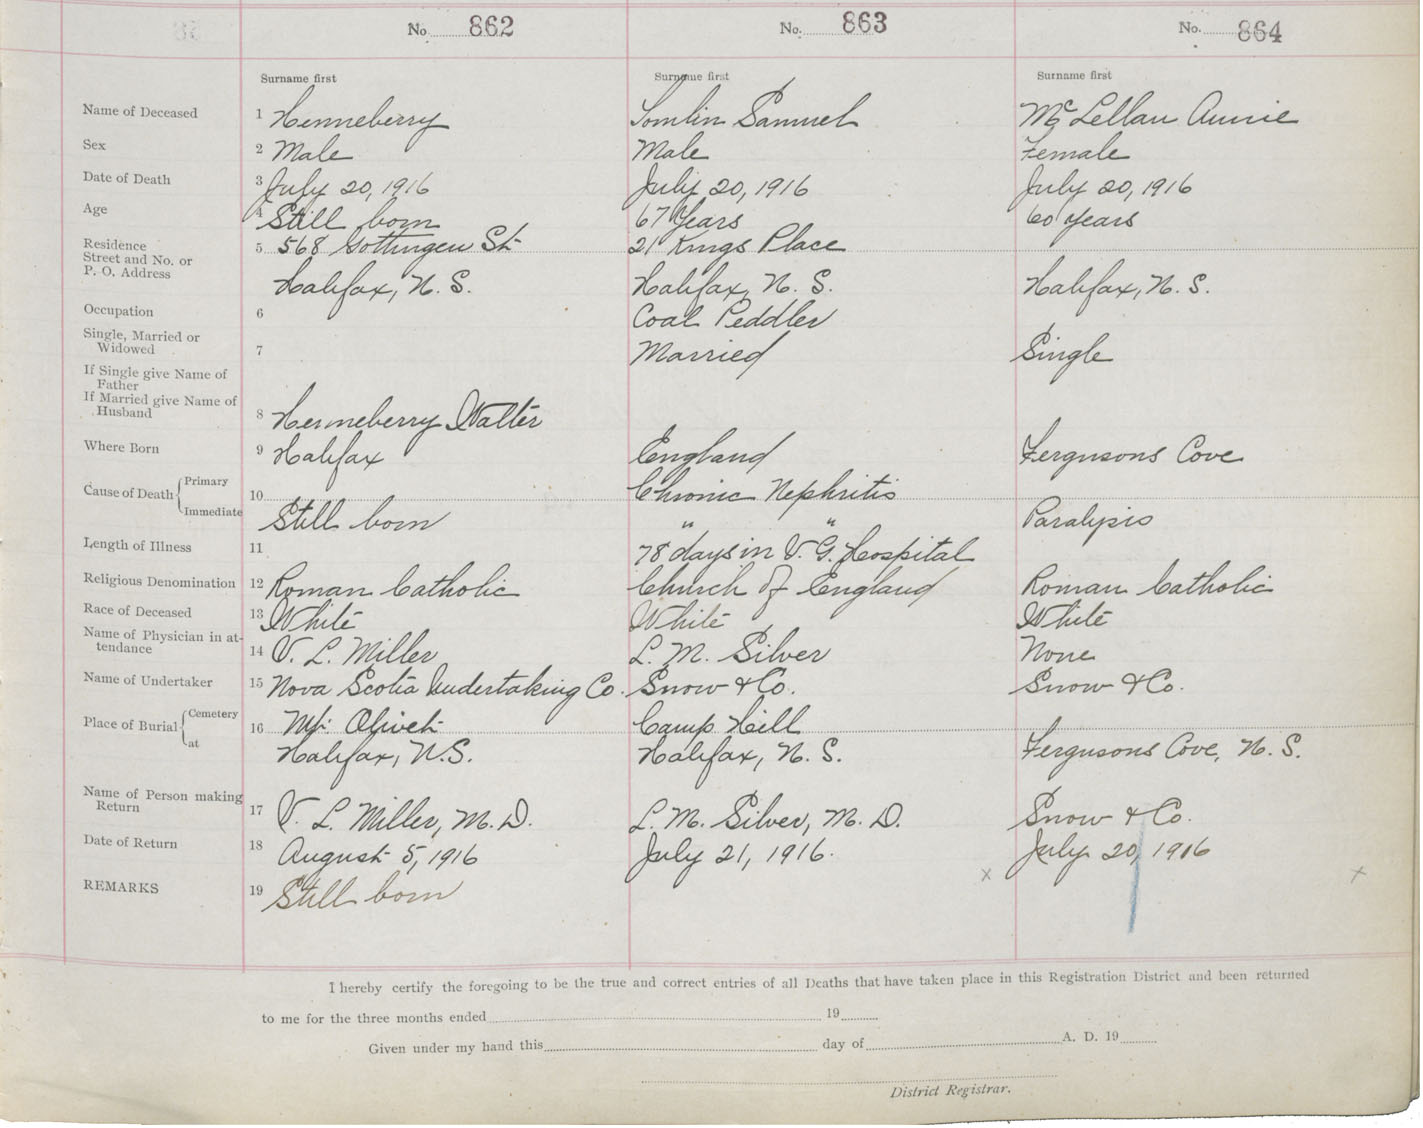 No. 862 No. 863 No. 864
Surname first Surname first Surname first
Name of Deceased 1 Henneberry Tomlin Samuel McLellan Annie
Sex 2 Male Male Female
Date of Death 3 July 20, 1916 July 20, 1916 July 20, 1916
Age 4 Still born 67 Years 60 Years
Residence 5 568 Gottingen St 21 Kings Place
Street and No. or
P. O. Address Halifax, N. S. Halifax, N. S. Halifax, N. S.
Occupation 6 Coal Peddler
Single, Married or
Widowed 7 Married Single
If Single give Name of
Father
If Married give Name of
Husband 8 Henneberry Walter
Where Born 9 Halifax England Fergusons Cove
Cause of Death Primary 10 Chronic Nephritis
Immediate Still born " " Paralysis
Length of Illness 11 78 days in V. G. Hospital
Religious Denomination 12 Roman Catholic Church of England Roman Catholic
Race of Deceased 13 White White White
Name of Physician in at-
tendance 14 V. L. Miller L. M. Silver None
Name of Undertaker 15 Nova Scotia Undertaking Co. Snow & Co. Snow & Co.
Place of Burial Cemetery 16 Mt. Olivet Camp Hill
at Halifax, N.S. Halifax, N. S. Fergusons Cove, N. S.
Name of Person making
Return 17 V. L. Miller, M. D. L. M. Silver, M. D. Snow & Co.
Date of Return 18 August 5, 1916 July 21, 1916. July 20, 1916
x x
REMARKS 19 Still born
I hereby certify the foregoing to be the true and correct entries of all Deaths that have taken place in this Registration District and been returned
to me for the three months ended 19
Given under my hand this day of A. D. 19
District Registrar.